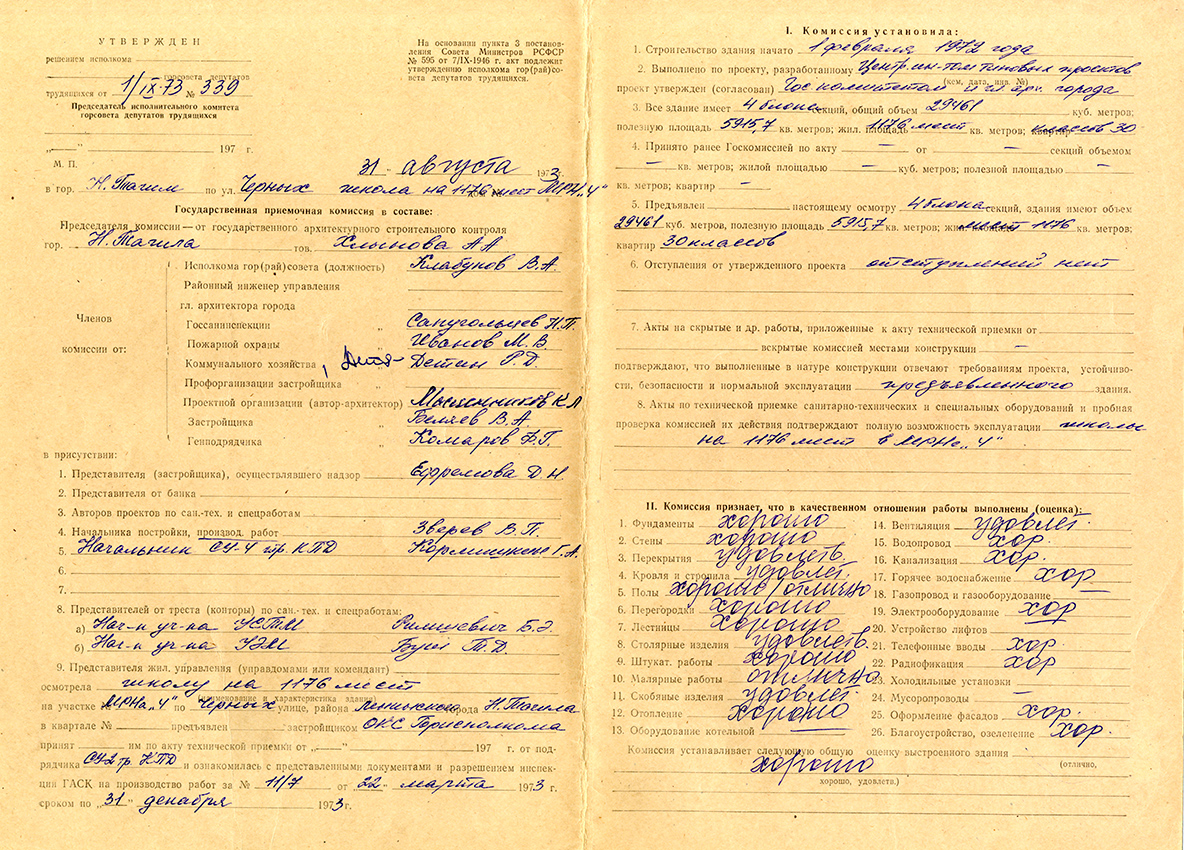 УТВЕРЖДЕН
решением исполкома
горсовета депутатов
трудящихся от 1/IX-73 № 339
Председатель исполнительного комитета
горсовета депутатов трудящихся
„ “ 197 г.
М. П.
На основании пункта 3 постанов-
ления Совета Министров РСФСР
№ 595 от 7/IX-1946 г. акт подлежит
утверждению исполкома гор(рай)со-
вета депутатов трудящихся.
31 августа 1973 г.
в гор. Н. Тагил по ул. Черных школа на 1176 мест МРН „4“
Государственная приемочная комиссия в составе:
Председателя комиссии — от государственного архитектурного строительного контроля
гор. Н. Тагила тов. Хлынова А А
Членов
комиссии от:
Исполкома гор(рай)совета (должность) Клабуков В. А.
Районный инженер управления
гл. архитектора города
Госсанинспекции „ Сапугольцев Н. П.
Пожарной охраны „ Иванов М. В
Коммунального хозяйства „ Детин Р. Д.
Профорганизации застройщика „
Проектной организации (автор-архитектор) К А
Застройщика „ Беляев В. А.
Генподрядчика „ Комаров В. Г.
в присутствии:
1. Представителя (застройщика), осуществлявшего надзор Ефремова Д. Н.
2. Представителя от банка
3. Авторов проектов по сан.-тех. и спецработам
4. Начальника постройки, производ. работ Зверев В. П.
5. Начальник СУ-4 тр. КПД Г. А.
6.
7.
8. Представителей от треста (конторы) по сан.-тех. и спецработам:
а) Нач-к уч-ка УСТМ Римшевич Б. Э.
б) Нач-к уч-ка УЭМ Т. Д.
9. Представителя жил. управления (управдомами или комендант)
осмотрела школу на 1176 мест
(наименование и характеристика здания)
на участке № МРН „4“ по Черных улице, района Ленинского города Н Тагила
в квартале № предъявлен застройщиком ОКС Горисполкома
принят — им по акту технической приемки от „—“ 197 г. от под-
рядчика тр. КПД и ознакомилась с представленными документами и разрешением инспек-
ции ГАСК на производство работ за № 11/7 от „22“ марта 1973 г.
сроком по „31“ декабря 1973 г.
I. Комиссия установила:
1. Строительство здания начато 1 февраля 1972 года
2. Выполнено по проекту, разработанному Центр. ин-том типовых проектов
(кем, дата, инв. №)
проект утвержден (согласован) Гос комитетом и гл. арх. города
3. Все здание имеет 4 блока секций, общий объем 29461 куб. метров;
полезную площадь 5915,7 кв. метров; жил. площадь 1176 мест кв. метров; квартир классов 30
4. Принято ранее Госкомиссией по акту — от — секций объемом
— кв. метров; жилой площадью — куб. метров; полезной площадью —
кв. метров; квартир —
5. Предъявлен настоящему осмотру 4 блока секций, здания имеют объем
29461 куб. метров, полезную площадь 5915,7 кв. метров; 1176 кв. метров;
квартир 30 классов
6. Отступления от утвержденного проекта отступлений нет
7. Акты на скрытые и др. работы, приложенные к акту технической приемки от
вскрытые комиссией местами конструкции —
подтверждают, что выполненные в натуре конструкции отвечают требованиям проекта, устойчиво-
сти, безопасности и нормальной эксплуатации предъявленного здания.
8. Акты по технической приемке санитарно-технических и специальных оборудований и пробная
проверка комиссией их действия подтверждают полную возможность эксплуатации школы
на 1176 мест в МРНе „4“
II. Комиссия признает, что в качественном отношении работы выполнены (оценка):
1. Фундаменты хорошо
2. Стены хорошо
3. Перекрытия удовлетв.
4. Кровля и стропила удовлет.
5. Полы хорошо отлично
6. Перегородки хорошо
7. Лестницы хорошо
8. Столярные изделия удовлетв.
9. Штукат. работы хорошо
10. Малярные работы отлично
11. Скобяные изделия удовлет.
12. Отопление хорошо
13. Оборудование котельной —
14. Вентиляция удовлет.
15. Водопровод хор.
16. Канализация хор.
17. Горячее водоснабжение хор
18. Газопровод и газооборудование —
19. Электрооборудование хор
20. Устройство лифтов
21. Телефонные вводы хор
22. Радиофикация хор
23. Холодильные установки
24. Мусоропроводы —
25. Оформление фасадов хор.
26. Благоустройство, озеленение хор.
Комиссия устанавливает следующую общую оценку выстроенного здания
хорошо
(отлично,
хорошо, удовлетв.)